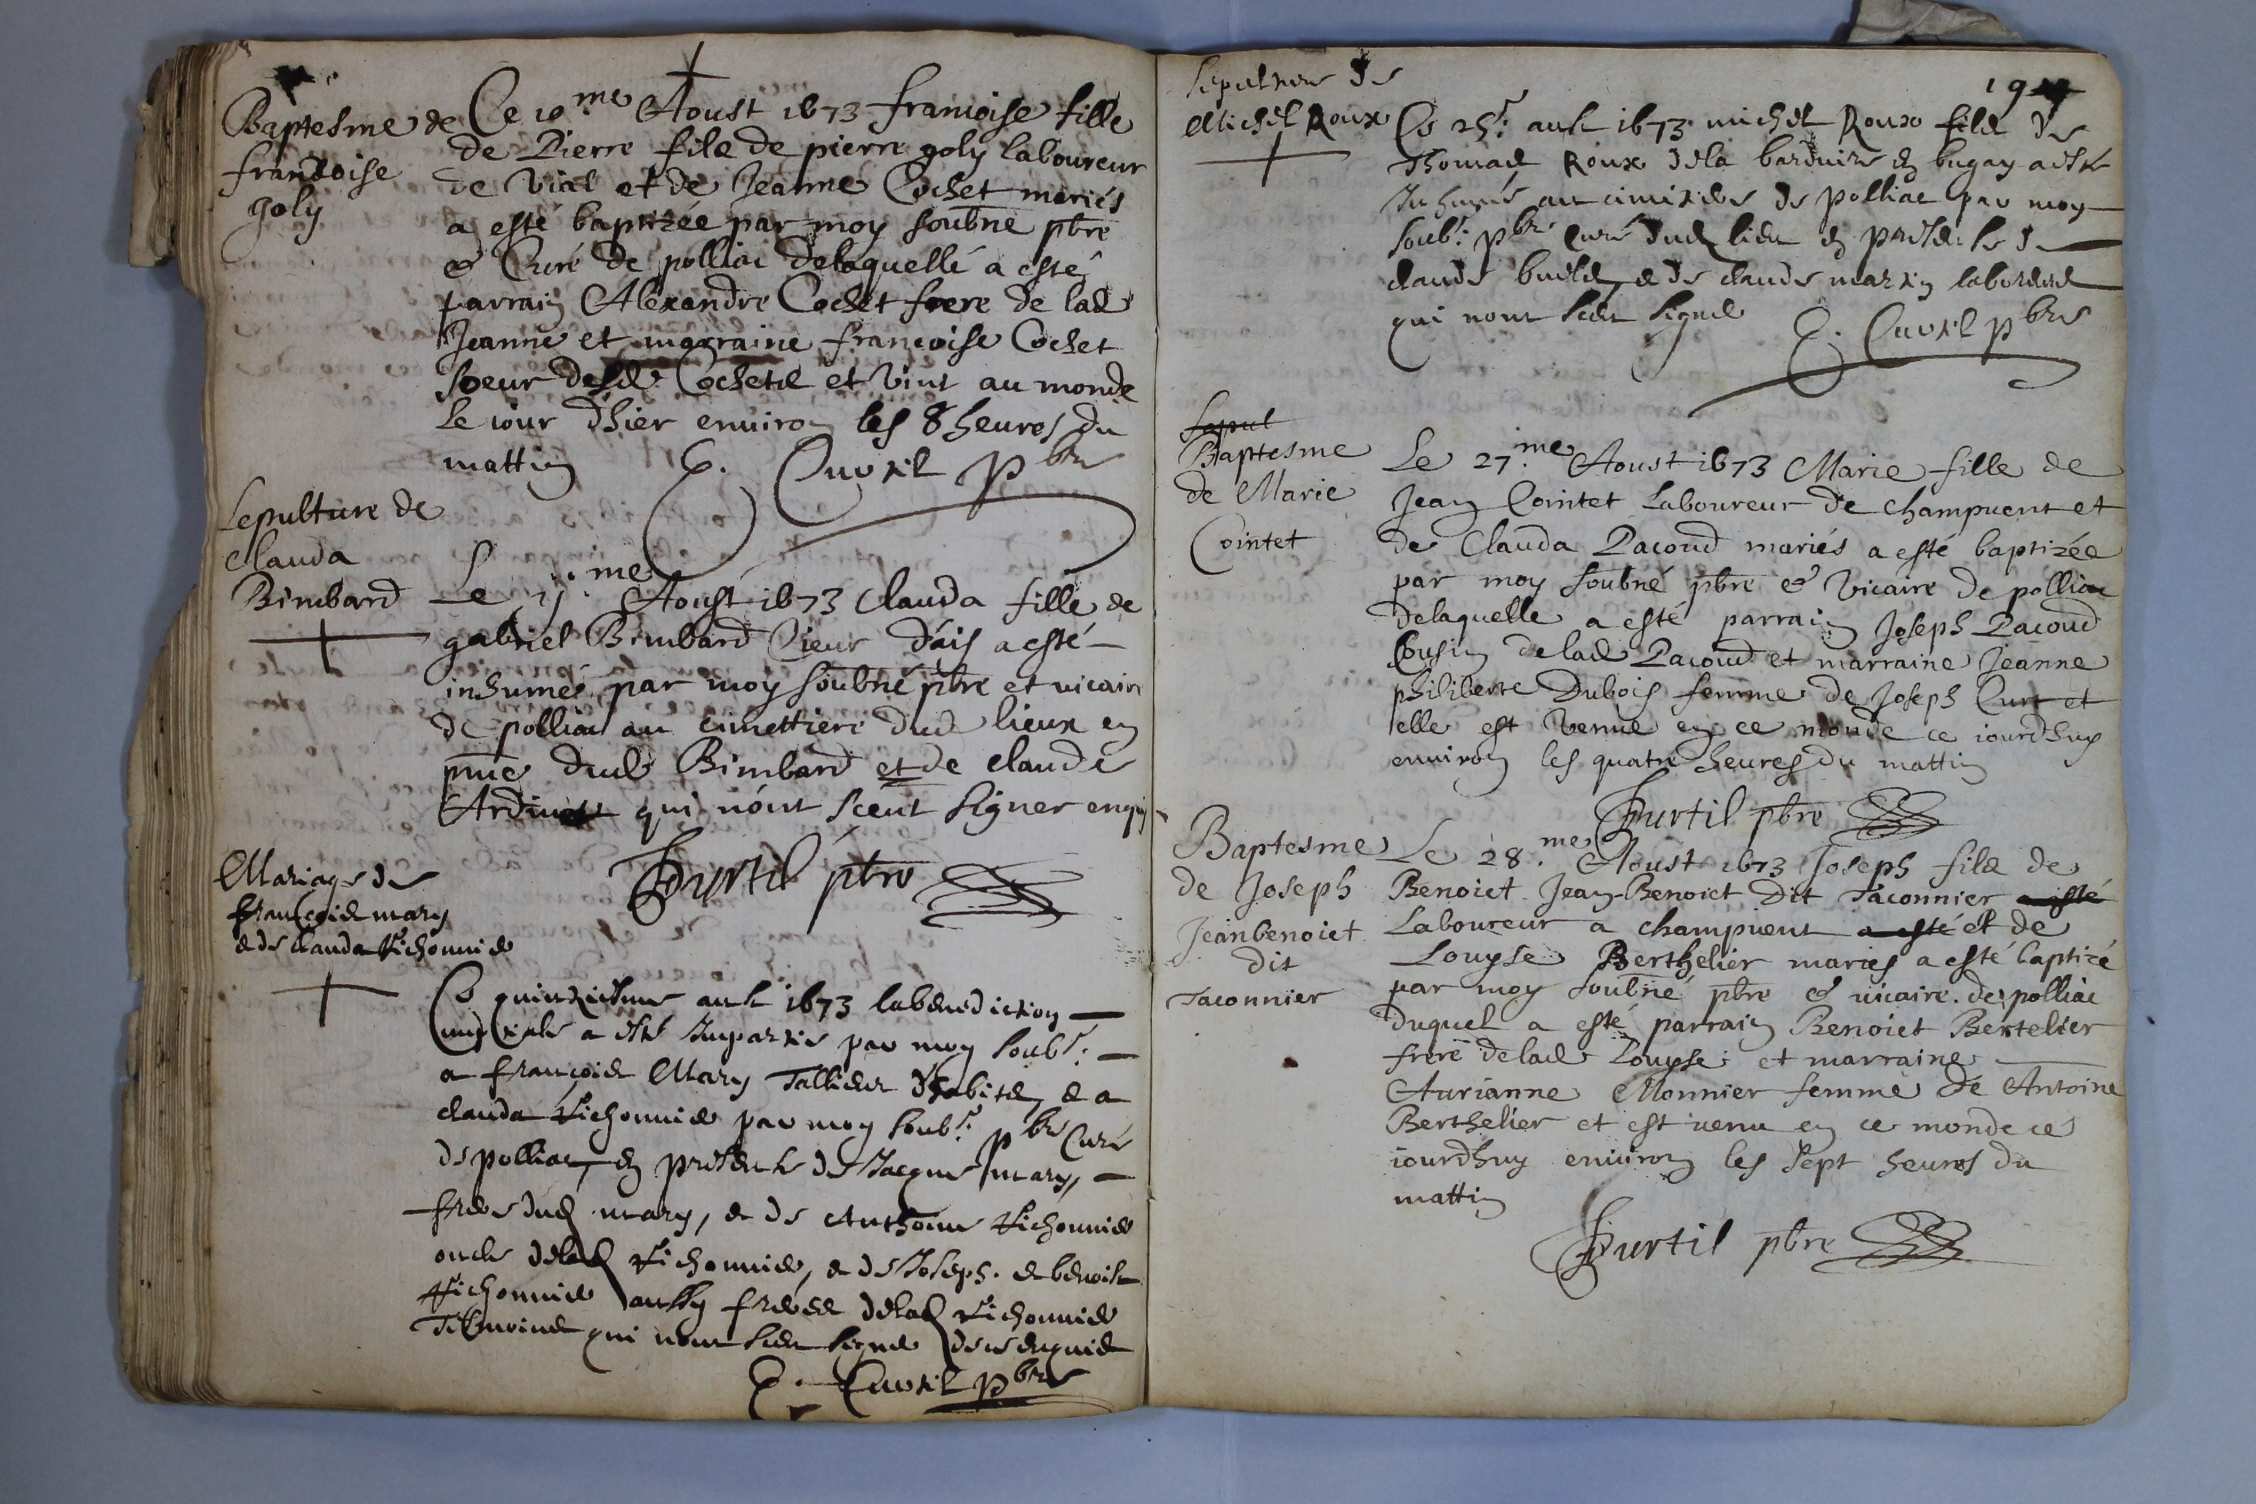 Baptesme de
françoise
goly
Ce 10.me Aoust 1673 françoise fille
de Pierre filz de pierre goly laboureur
de Vial et de Jeanne Cochet mariés
a esté baptizée par moy soubné pbre
& Curé de polliac delaquelle a esté
parrain Alexandre Cochet frere de lad
Jeanne et marraine françoise Cochet
soeur desd Cochetz et vint au monde
le iour d'hier environ les 8 heures du
mattin E. Curtil pbre
Sepulture de
Clauda
Bimbard
Le me Aoust 1673 Clauda fille de
gabriel Bimbard d'ais a esté
inhumée par moy soubné pbre et vicaire
de polliac au cimettiere dud lieux en
pnce dud Bimbard et de claude
qui n'ont sceut signer enquis
Curtil pbre
Mariage de
françois mary
& de clauda Vichonnier
Ce quinziesme aust 1673 la benediction
nuptiale a esté impartie par moy soubs.
a françois Mary & a
clauda Vichonnier par moy soubs. pbre Curé
de polliac, en presence de Jacque mary,
frere dud mary, & de Anthoine Vichonnier
oncle delad Vichonnier, & de Joseph. & benoist
Vichonnier aussy freres delad Vichonnier
Tesmoins qui n'ont sceu signer de ce enquis
E. Curtil pbre
Sepulture de
Michel Roux
19
Ce 25. aust 1673 michel Roux filz de
Thomas Roux dela en bugay a esté
Inhumé au cimitiere de polliac par moy
soubs. pbre Curé dud lieu en presence de
claude & de claude martin laboureurs
qui nont sceu signer E. Curtil pbre
Sepul
Baptesme
de Marie
Cointet
Le 27.me Aoust 1673 Marie fille de
Jean Cointet Laboureur de champvent et
de Clauda Pacoud mariés a esté baptizée
par moy soubné pbre & vicaire de polliac
delaquelle a esté parrain Joseph Pacoud
Cousin delad Pacoud et marraine Jeanne
philiberte Dubois femme de Joseph Curt et
elle est venue en ce monde ce iourdhuy
environ les quatre heures du mattin
Curtil pbre
Baptesme
de Joseph
Jeanbenoict
dit
Taconnier
Le 28.me Aoust 1673 Joseph filz de
Benoict Jean-Benoict Dit Taconnier a esté
Laboureur a champvent a esté et de
Louyse Berthelier mariés a esté baptizé
par moy soubné pbre & vicaire de polliac
duquel a esté parrain Benoict Bertelier
frere delad Louyse et marraine
Aurianne Monnier femme de Antoine
Berthelier et est venu en ce monde ce
iourdhuy environ les sept heures du
mattin
Curtil pbre